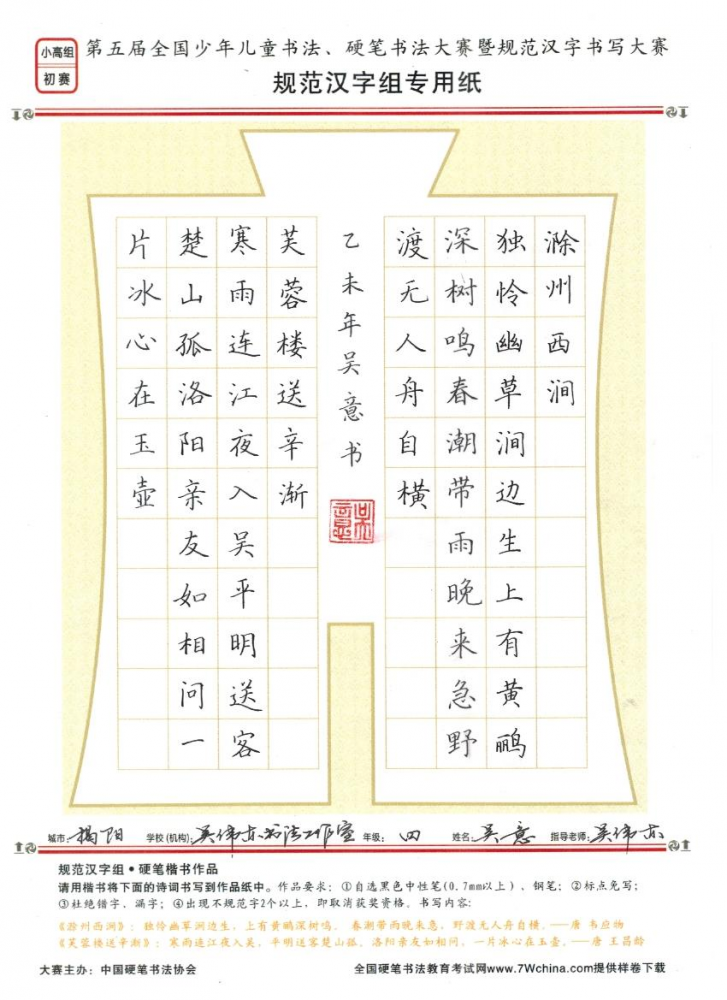 小高组
初赛
第五届全国少年儿童书法、硬笔书法大赛暨规范汉字书写大赛
规范汉字组专用纸
滁州西涧
独怜幽草涧边生上有黄鹂
深树鸣春潮带雨晚来急野
渡无人舟自横
乙未年吴意书
吴意
芙蓉楼送辛渐
寒雨连江夜入吴平明送客
楚山孤洛阳亲友如相问一
片冰心在玉壶
城市：揭阳 学校(机构)：吴伟亦书法工作室 年级：四 姓名：吴意 指导老师：吴伟亦
规范汉字组•硬笔楷书作品
请用楷书将下面的诗词书写到作品纸中。作品要求：①自选黑色中性笔(0.7mm以上)、钢笔；②标点免写；
③杜绝错字、漏字；④出现不规范字2个以上，即取消获奖资格。书写内容：
《滁州西涧》：独怜幽草涧边生，上有黄鹂深树鸣。春潮带雨晚来急，野渡无人舟自横。——唐 韦应物
《芙蓉楼送辛渐》：寒雨连江夜入吴，平明送客楚山孤。洛阳亲友如相问，一片冰心在玉壶。——唐 王昌龄
大赛主办：中国硬笔书法协会 全国硬笔书法教育考试网www.7Wchina.com提供样卷下载